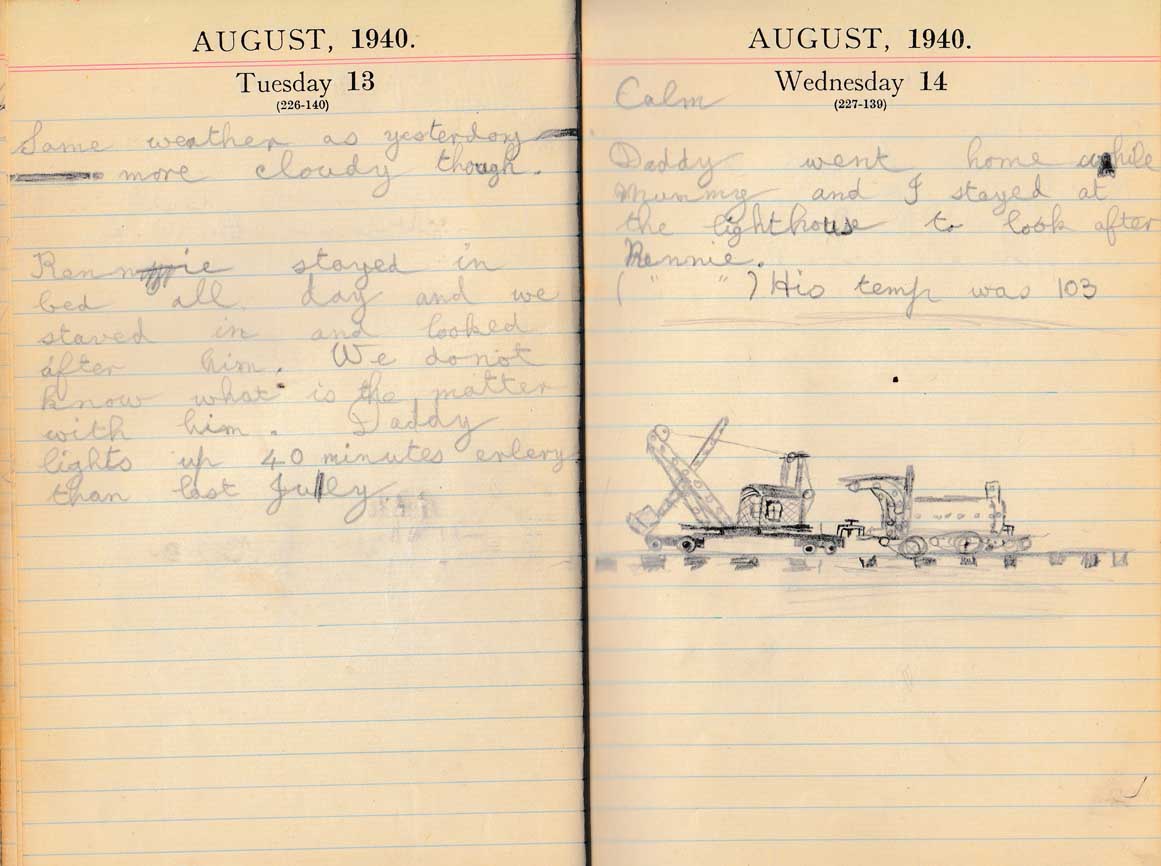 AUGUST, 1940.
Tuesday 13
(226-140)
Same weather as yesterday
more cloudy though.
Rennie stayed in
bed all day and we
stayed in and looked
after him. We donot
know what is the matter
with him. Daddy
lights up 40 minutes erlery
than last July
AUGUST, 1940.
Wednesday 14
(227-139)
Calm
Daddy went home while
Mummy and I stayed at
the lighthouse to look after
Rennie.
( " " ) His temp was 103